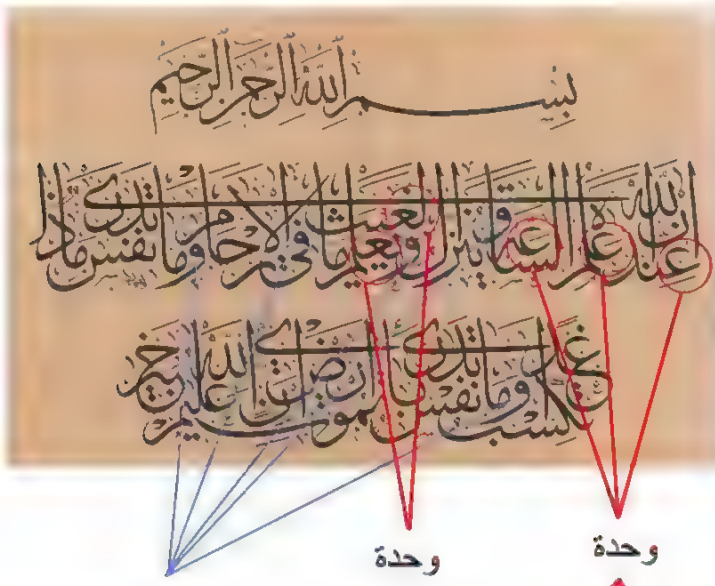 بسم الله الرحمن الرحيم
إن الله عنده علم الساعة وينزل الغيث ويعلم ما في الأرحام وما تدري نفس ماذا
تكسب غدا وما تدري نفس بأي أرض تموت إن الله عليم خبير
وحدة
وحدة